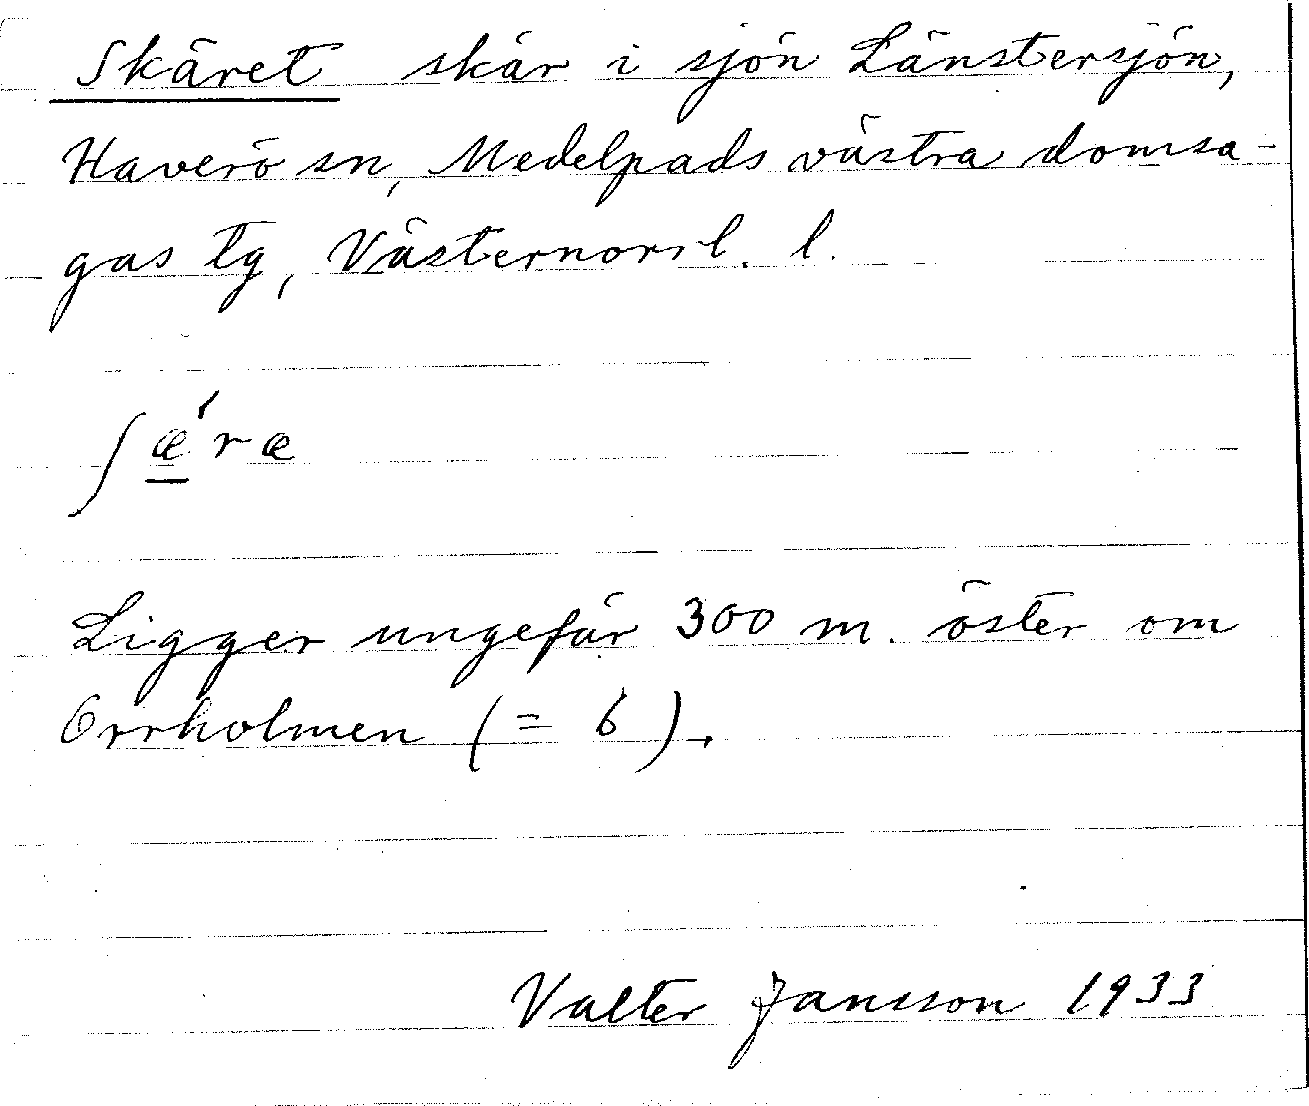 Skäret skär i sjön Länstersjön,
Haverö sn, Medelpads västra domsa-
gas tg, Västernorrl. l.
ʃǽ̲ræ
Ligger ungefär 300 m. öster om
Orrholmen (= 6).
Valter Jansson 1933